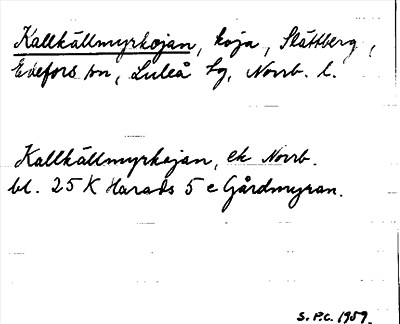 Kallkällmyrkojan, koja, Slättberg,
Edefors sn, Luleå lg, Norrb. l.
Kallkällmyrkojan, ek Norrb.
bl. 25 K Harads 5 e Gårdmyran.
S.P.C. 1959.